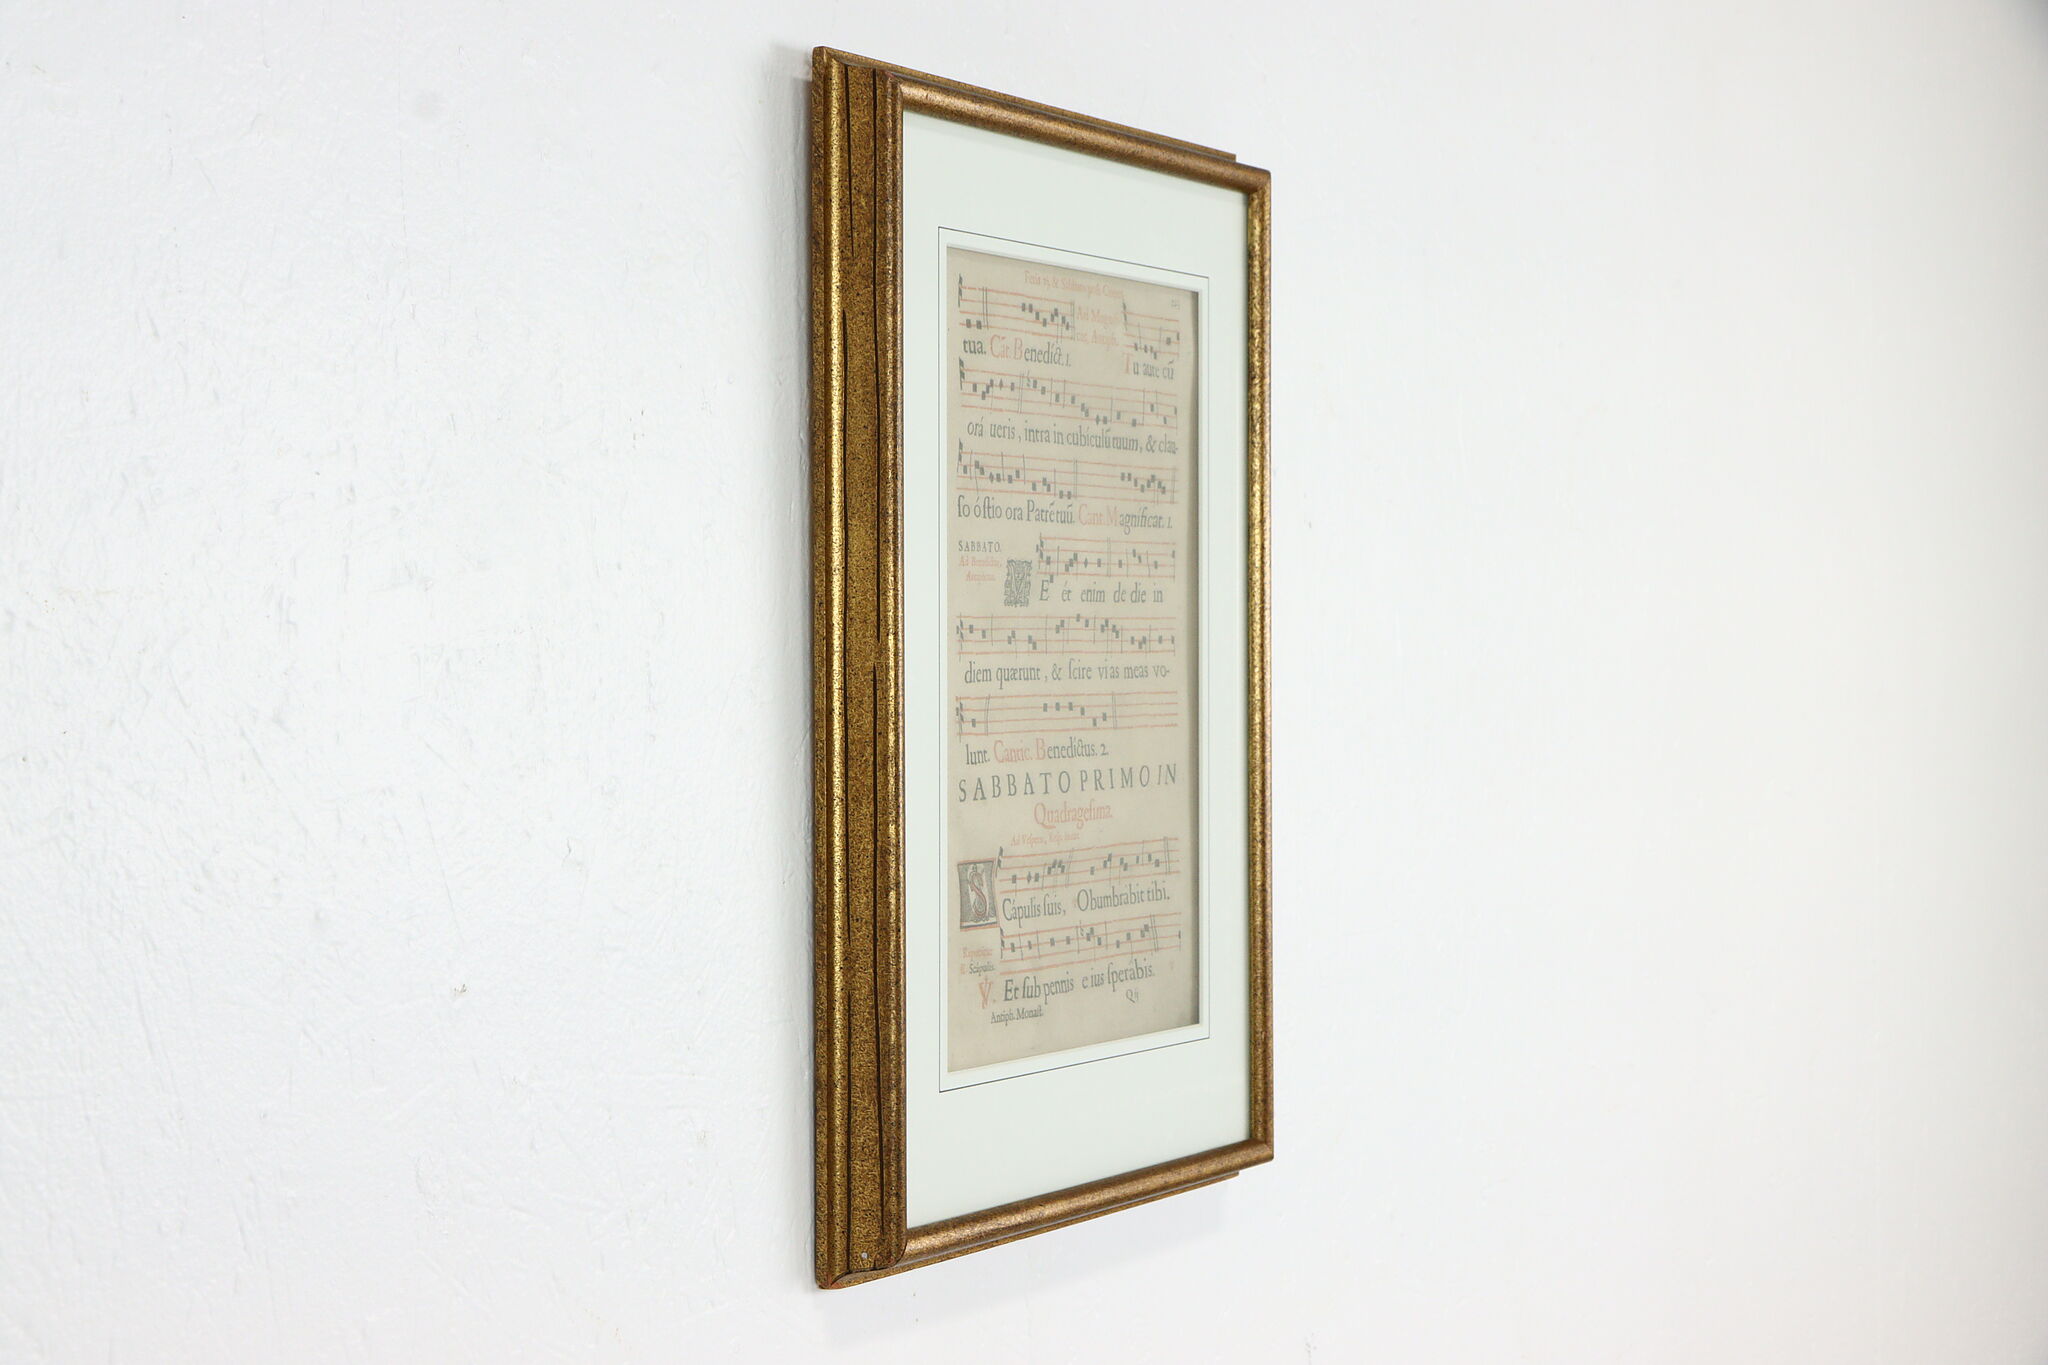 Feria 6, & Sabbato post Ciner.
Ad Magni-
tua. Cát. Benedíct. 1. cat, Antiph. Tu auté cū
orá ueris, intra in cubículū tuum, & clau-
so óstio ora Patrē tuū. Cant. Magníficat. 1.
SABBATO.
Ad Benedictus,
Antiphona.
ME ét enim de die in
diem quærunt, & scire vias meas vo-
lunt. Cantic. Benedíctus. 2.
SABBATO PRIMO IN
Quadragesima.
Ad Vesperas,
SCápulis suis, Obumrábit tibi.
Scápulis.
℣. Et sub pennis eius sperábis.
Antiph. Monast.